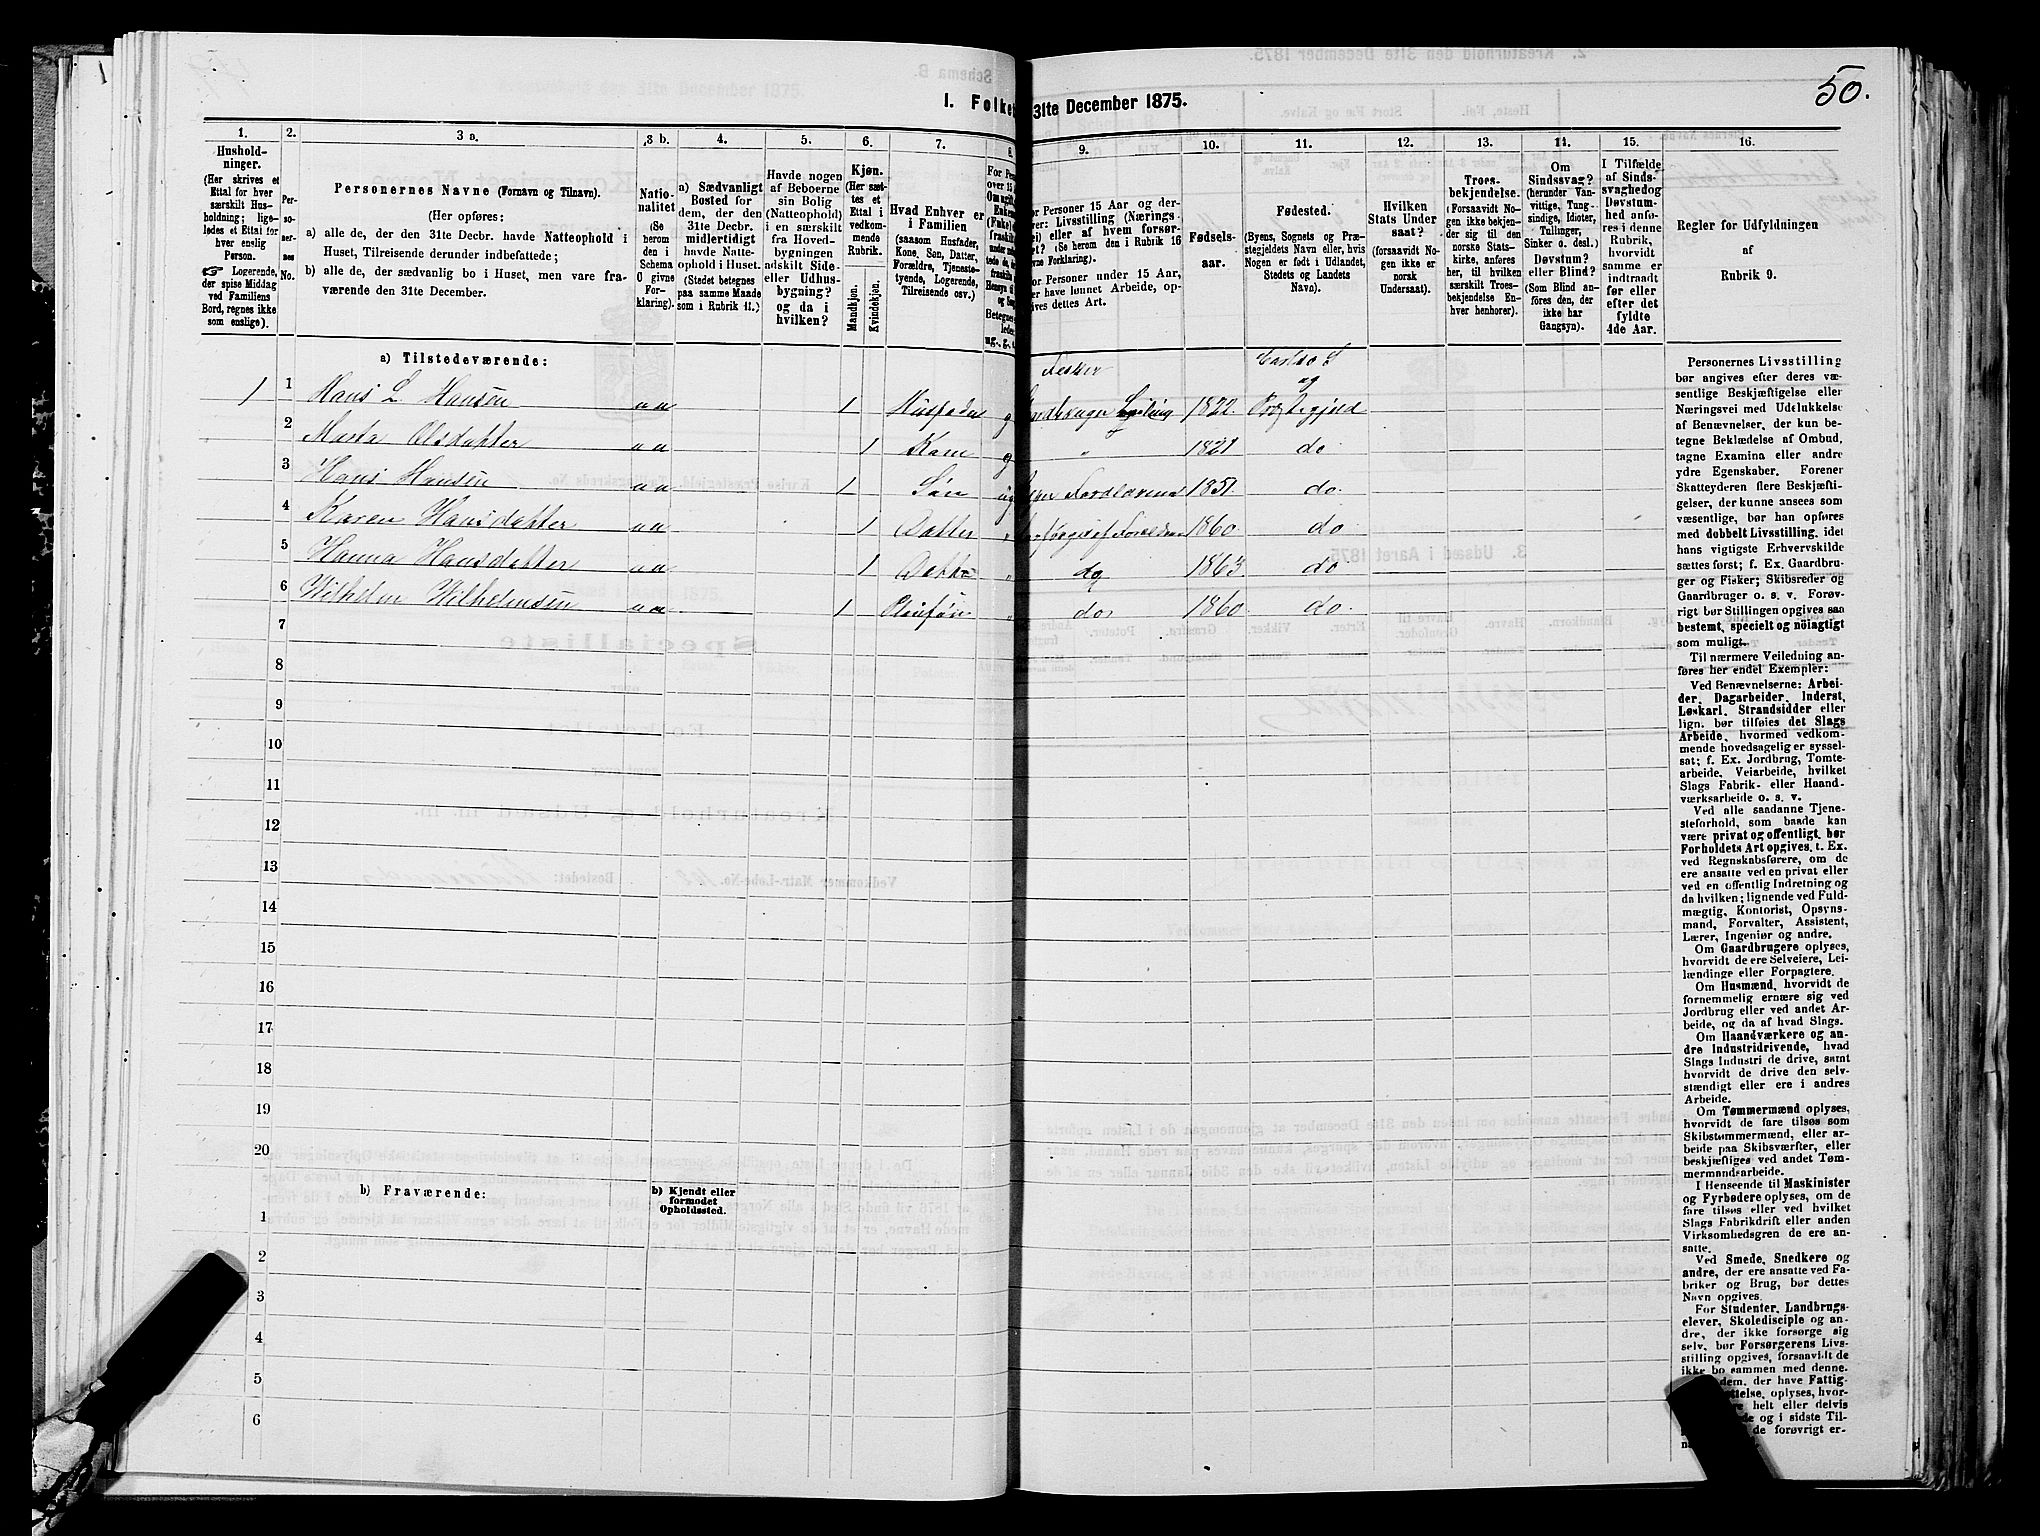 50.
I. Folke
31te December 1875.
1.
2.
3 a.
3 b.
4.
5.
6.
7.
8.
9.
10.
11.
12.
13.
14.
15.
16.
Hushold-
ninger.
(Her skrives et
Ettal for hver
særskilt Hus-
holdning; lige-
ledes et Ettal for
hver enslig
Person.
☞ Logerende,
der spise Middag
ved Familiens
Bord, regnes ikke
som enslige).
Per-
so-
ner-
nes
No.
Personernes Navne (Fornavn og Tilnavn).
(Her opføres:
a) alle de, der den 31te Decbr. havde Natteophold i
Huset, Tilreisende derunder indbefattede;
b) alle de, der sædvanlig bo i Huset, men vare fra-
værende den 31te December.
Natio-
nalitet
(Se
herom
den i
Schema
O givne
For-
klaring).
a) Sædvanligt
Bosted for
dem, der den
31te Decbr.
midlertidigt
havde Natte-
ophold i Huset.
(Stedet betegnes
paa samme Maade
som i Rubrik 11.)
Havde nogen
af Beboerne
sin Bolig
(Natteophold)
i en særskilt
fra Hoved-
bygningen
adskilt Side-
eller Udhus-
bygning?
og da i
hvilken?
Kjøn.
(Her sæt-
tes et
Ettal i
vedkom-
mende
Rubrik.
Mandkjøn.
Kvindekjøn.
Hvad Enhver er
i Familien
(saasom Husfader,
Kone, Søn, Datter,
Forældre, Tjeneste-
tyende, Logerende,
Tilreisende osv.)
or Personer 15 Aar og der-
er: Livsstilling (Nærings-
ei) eller af hvem forsør-
t? (Se herom den i Rubrik 16
vne Forklaring).
Personer under 15 Aar,
er have lønnet Arbeide, op-
ives dettes Art.
Fødsels-
aar.
Fødested.
(Byens, Sognets og Præ-
stegjeldets Navn eller, hvis
Nogen er født i Udlandet,
Stedets og Landets
Navn).
Hvilken
Stats Under-
saat?
(forsaavidt No-
gen ikke er
norsk
Undersaat).
Troes-
bekjendelse.
(Forsaavidt No-
gen ikke bekjen-
der sig til den
norske Stats-
kirke, anføres
her, til hvilken
særskilt Troes-
bekjendelse En-
hver henhorer).
Om
Sindssvag?
(herunder Van-
vittige, Tung-
sindige, Idioter,
Tullinger,
Sinker o. desl.)
Døvstum?
eller Blind?
(Som Blind an-
føres den, der
ikke har
Gangsyn).
I Tilfælde
af Sinds-
svaghedog
Døvstum-
hed anfø-
res i denne
Rubrik,
hvorvidt
samme er
indtraadt
før eller
efter det
fyldte
4de Aar.
Regler for Udfyldningen
af
Rubrik 9.
a) Tilstedeværende:
Fisker
og
1 1 Hans L Hansen 1 Husfader g 1822. Præstegjeld
2 Marta Olsdatter 1 Kone g " 1821 do
3 Hans Hansen 1 Søn ug 1851. do.
4 Karen Hansdatter 1 Datter " 1860. do
5 Hanna Hansdatter 1 " do 1863. do
6 Wilhelm Wilhelmsen 1 Pleiesøn " do 1860. do.
7
8
9
10
11
12
13
14
15
16
17
18
19
20
b) Fraværende:
b) Kjendt eller
formodet
Opholdssted.
1
2
3
4
5
6
Personernes Livsstilling
bør angives efter deres væ-
sentlige Beskjæftigelse eller
Næringsvei med Udelukkelse
af Benævnelser, der kun be-
tegne Beklædelse af Ombud,
tagne Examina eller andre
ydre Egenskaber. Forener
Skatteyderen flere Beskjæfti-
gelser, der kunne ansees som
væsentlige, bør han opføres
med dobbelt Livsstilling, idet
hans vigtigste Erhvervskilde
sættes først; f. Ex. Gaardbru-
ger og Fisker; Skibsreder og
Gaardbruger o. s. v. Forøv-
rigt bør Stillingen opgives saa
bestemt, specielt og nöiagtigt
som muligt.
Til nærmere Veiledning an-
føres her endel Exempler:
Ved Benævnelserne: Arbei-
der, Dagarbeider, Inderst,
Løskarl, Strandsidder eller
lign. bør tilføies det Slags
Arbeide, hvormed vedkom-
mende hovedsagelig er syssel-
sat; f. Ex. Jordbrug, Tomte-
arbeide, Veiarbeide, hvilket
Slags Fabrik- eller Haand-
værksarbeide o. s. v.
Ved alle saadanne Tjene-
steforhold, som baade kan
være privat og offentligt, bør
Forholdets Art opgives, t. Ex.
ved Regnskabsførere, om de
ere ansatte ved en privat eller
ved en offentlig Indretning og
da hvilken; lignende ved Fuld-
mægtig, Kontorist, Opsyns-
mand, Forvalter, Assistent,
Lærer, Ingeniør og andre.
Om Gaardbrugere oplyses,
hvorvidt de ere Selveiere, Lei-
lændinge eller Forpagtere.
Om Husmænd, hvorvidt de
fornemmelig ernære sig ved
Jordbrug eller ved andet Ar-
beide, og da af hvad Slags.
Om Haandværkere og an-
dre Industridrivende, hvad
Slags Industri de drive, samt
hvorvidt de drive den selv-
stændigt eller ere i andres
Arbeide.
Om Tømmermænd oplyses,
hvorvidt de fare tilsøs som
Skibstømmermænd, eller ar-
beide paa Skibsværfter, eller
beskjæftiges ved andet Tøm-
mermandsarbeide.
I Henseende til Maskinister
og Fyrbødere oplyses, om de
fare tilsøs eller ved hvilket
Slags Fabrikdrift eller anden
Virksomhedsgren de ere an-
satte.
Ved Smede, Snedkere og
andre, der ere ansatte ved Fa-
briker og Brug, bør dettes
Navn opgives.
For Studenter, Landbrugs-
elever, Skoledisciple og an-
dre, der ikke forsørge sig
selv, bør Forsørgerens Livs-
stilling opgives, forsaavidt de
ikke bo sammen med denne.
dem, der have Fattig-
telse, oplyses, hvor-
helt eller delvis
de og i sidste Til-
de forøvrigt er-